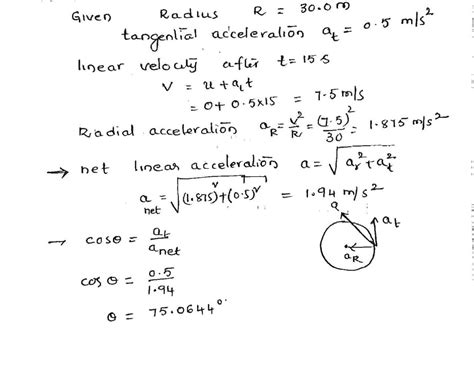 Given Radius R = 30.0 m
tangential acceleration a_t = 0.5 m/s²
linear velocity after t = 15 s
V = u + a_t t
= 0 + 0.5×15 = 7.5 m/s
Radial acceleration a_R = V²/R = (7.5)²/30 = 1.875 m/s²
→ net linear acceleration a = √(a_r² + a_t²)
a_net = √((1.875)² + (0.5)²) = 1.94 m/s²
a
a_t
a_R
→ cosθ = a_t/a_net
cosθ = 0.5/1.94
θ = 75.0644°.